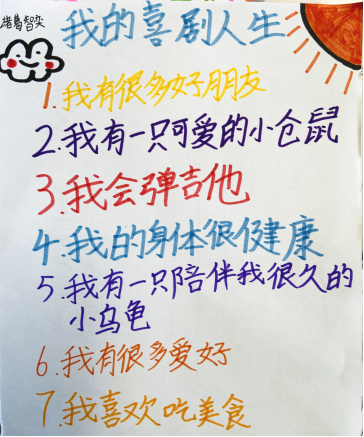 诸葛智奕
我的喜剧人生
1.我有很多好朋友
2.我有一只可爱的小仓鼠
3.我会弹吉他
4.我的身体很健康
5.我有一只陪伴我很久的
小乌龟
6.我有很多爱好
7.我喜欢吃美食